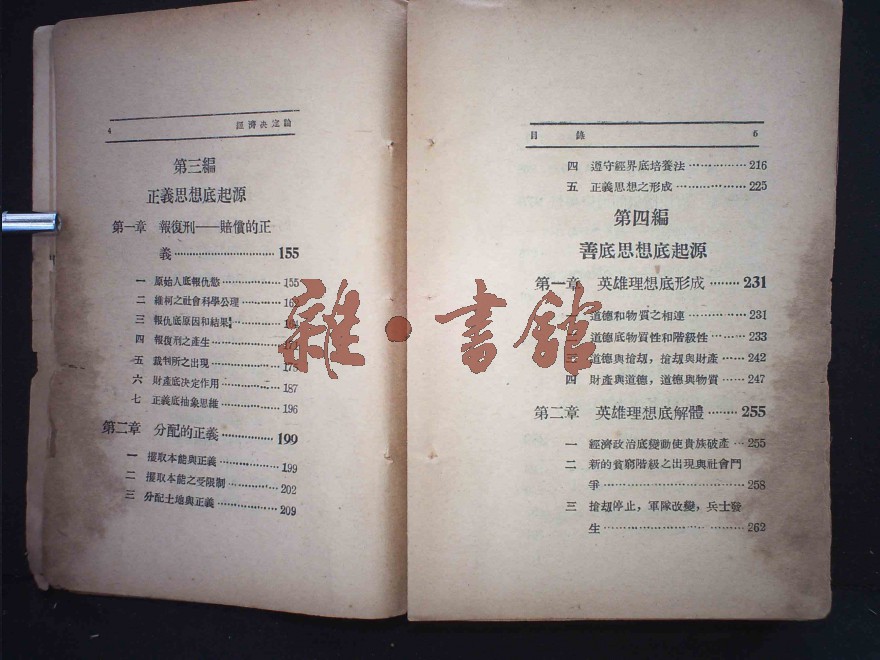 4 經濟決定論
第三編
正義思想底起源
第一章 報復刑——賠償的正
義 155
一 原始人底報仇慾 155
二 維柯之社會科學公理
三 報仇底原因和結果
四 報復刑之產生
五 裁判所之出現 175
六 財產底決定作用 187
七 正義底抽象思維 196
第二章 分配的正義 199
一 攫取本能與正義 199
二 攫取本能之受限制 202
三 分配土地與正義 209
目 錄 5
四 遵守經界底培養法 216
五 正義思想之形成 225
第四編
善底思想底起源
第一章 英雄理想底形成 231
一 道德和物質之相連 231
二 道德底物質性和階級性 233
三 道德與搶刼,搶刼與財產 242
四 財產與道德,道德與物質 247
第二章 英雄理想底解體 255
一 經濟政治底變動使貴族破產 255
二 新的貧窮階級之出現與社會鬥
爭 258
三 搶刼停止,軍隊改變,兵士發
生 262
雜·書館